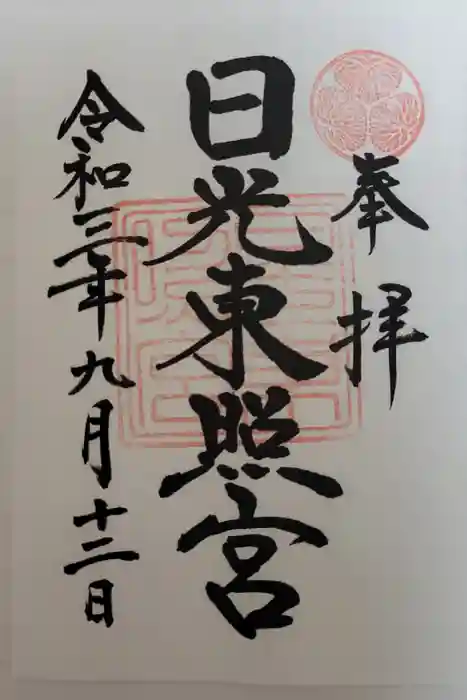 奉拝
日光東照宮
令和三年九月十二日